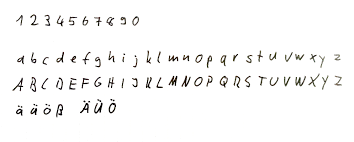 1 2 3 4 5 6 7 8 9 0
a b c d e f g h i j k l m n o p q r s t u v w x y z
A B C D E F G H I J K L M N O P Q R S T U V W X Y Z
ä ü ö ß Ä Ü Ö